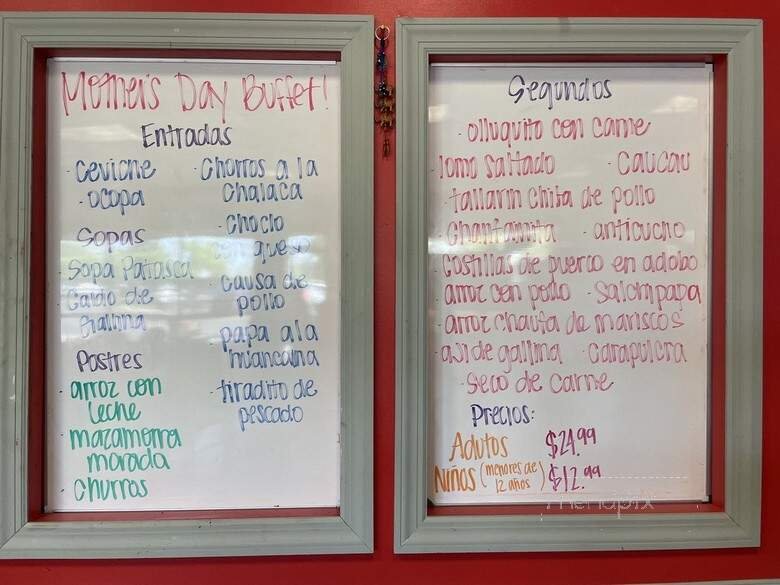 Mother's Day Buffet!
Entradas
· ceviche
· ocopa
· Chorros a la
chalaca
· choclo
con queso
· causa de
pollo
· papa a la
huancaina
· tiradito de
pescado
Sopas
· Sopa Patasca
· Caldo de
Gallina
Postres
· arroz con
leche
· mazamorra
morada
· churros
Segundos
· olluquito con carne
· lomo saltado · caucau
· tallarin chifa de pollo
· Chanfainita · anticucho
· Costillas de puerco en adobo
· arroz con pollo · salchipapa
· arroz chaufa de mariscos
· aji de gallina · carapulcra
· seco de carne
Precios:
Adutos $24.99
Niños (menores de
12 años) $12.99
menupix